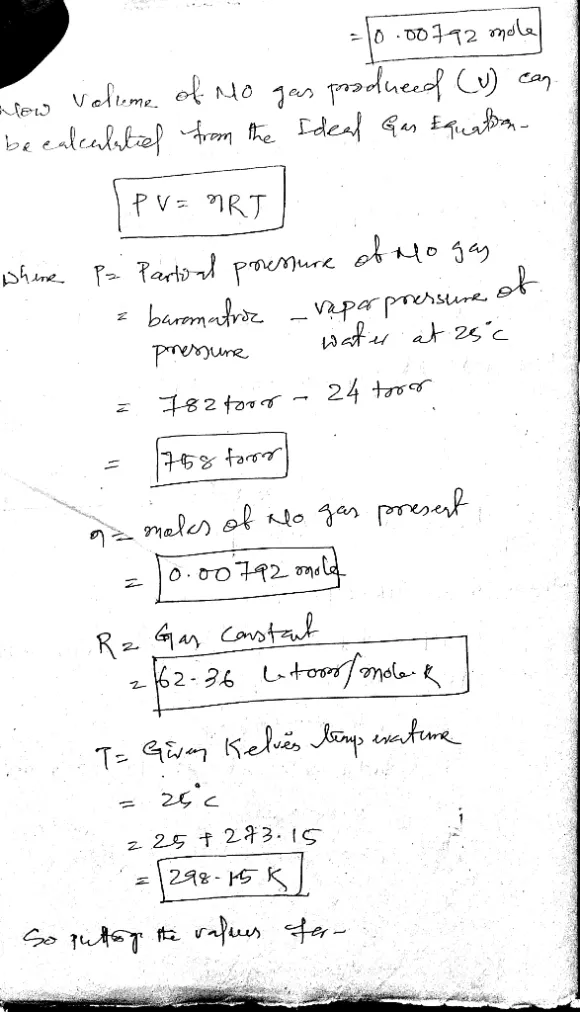 = 0.00792 mole
Now volume of NO gas produced (V) can
be calculated from the Ideal Gas Equation-
PV = nRT
Where P = Partial pressure of NO gas
= barometric - vapor pressure of
pressure water at 25°C
= 782 torr - 24 torr
= 758 torr
n = moles of NO gas present
= 0.00792 mole
R = Gas constant
= 62.36 L.torr/mole.K
T = Given Kelvin temperature
= 25°C
= 25 + 273.15
= 298.15 K
So putting the values for-